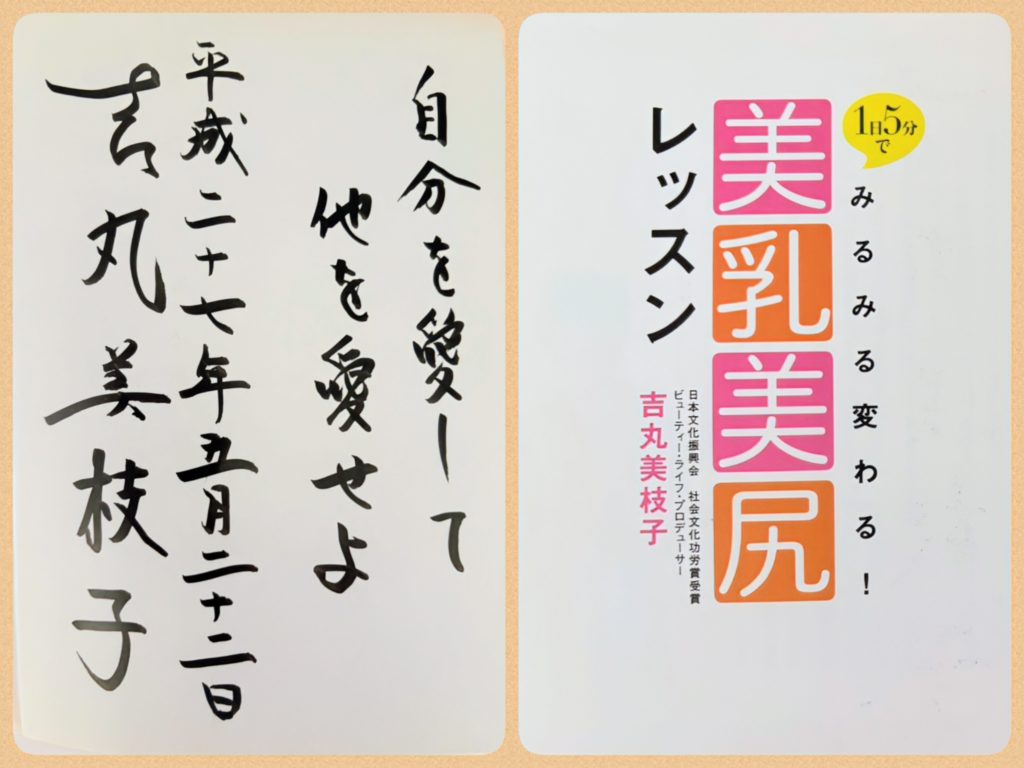 自分を愛して
他を愛せよ
平成二十七年五月二十二日
吉丸美枝子
1日5分で
みるみる変わる!
美乳美尻
レッスン
日本文化振興会 社会文化功労賞受賞
ビューティー・ライフ・プロデューサー
吉丸美枝子